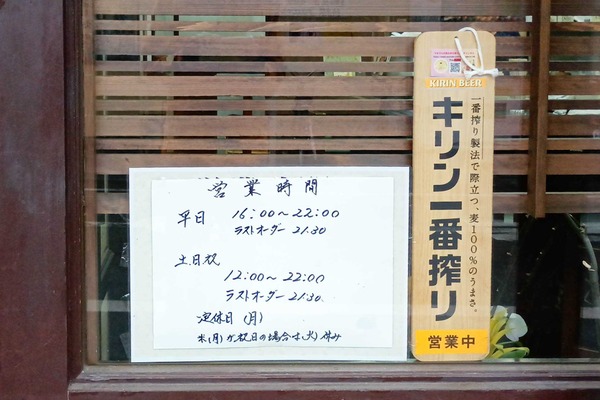 営業時間
平日 16:00~22:00
ラストオーダー 21:30
土.日祝
12:00~22:00
ラストオーダー 21:30.
定休日(月)
(月)が祝日の場合は(火)休み
KIRIN BEER
一番搾り製法で際立つ、麦100%のうまさ。
キリン一番搾り
営業中